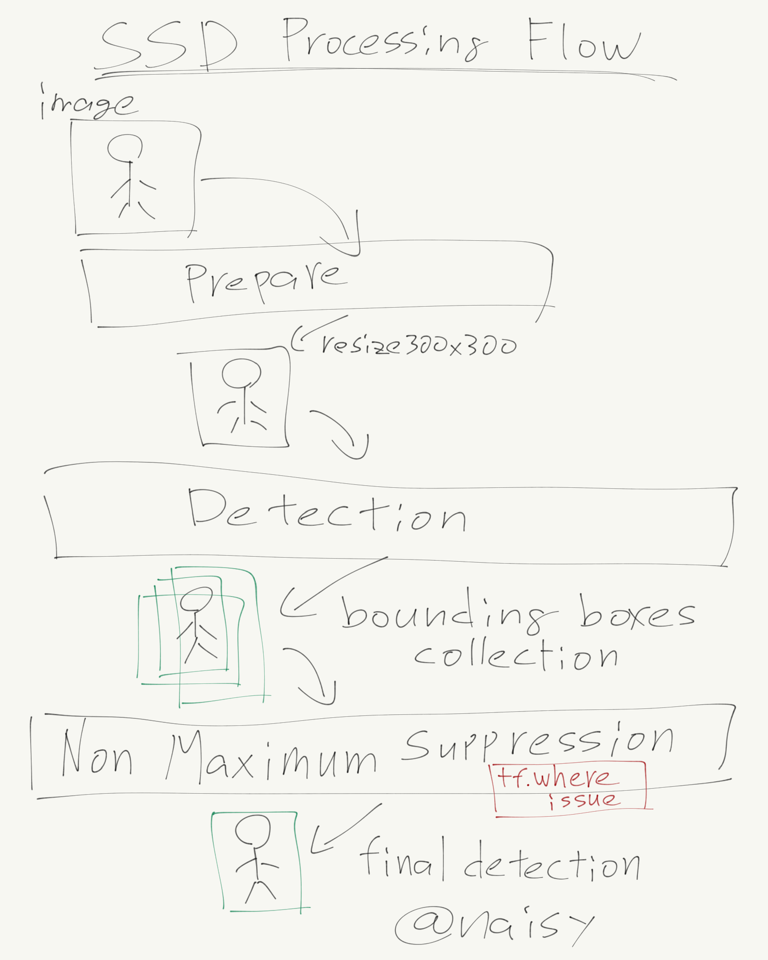 SSD Processing Flow
image
Prepare
resize300x300
Detection
bounding boxes
collection
Non Maximum Suppression
tf.where
issue
final detection
@naisy